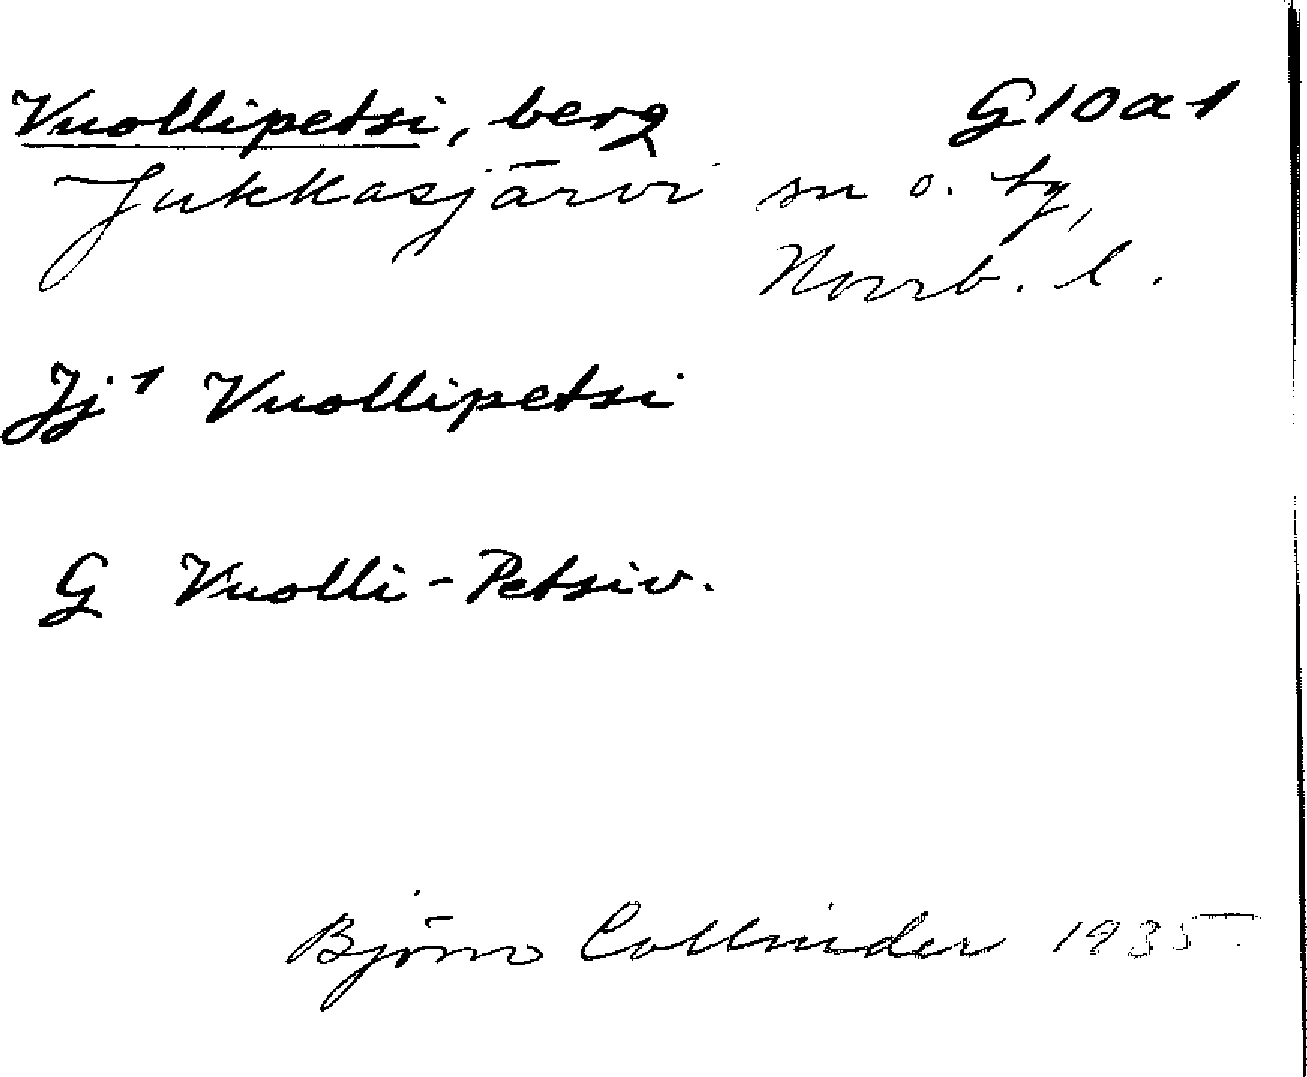 Vuollipetsi, berg G10a1
Jukkasjärvi sn o. tg,
Norrb. l.
Jj 1 Vuollipetsi
G Vuolli-Petsiv.
Björn Collinder 1935